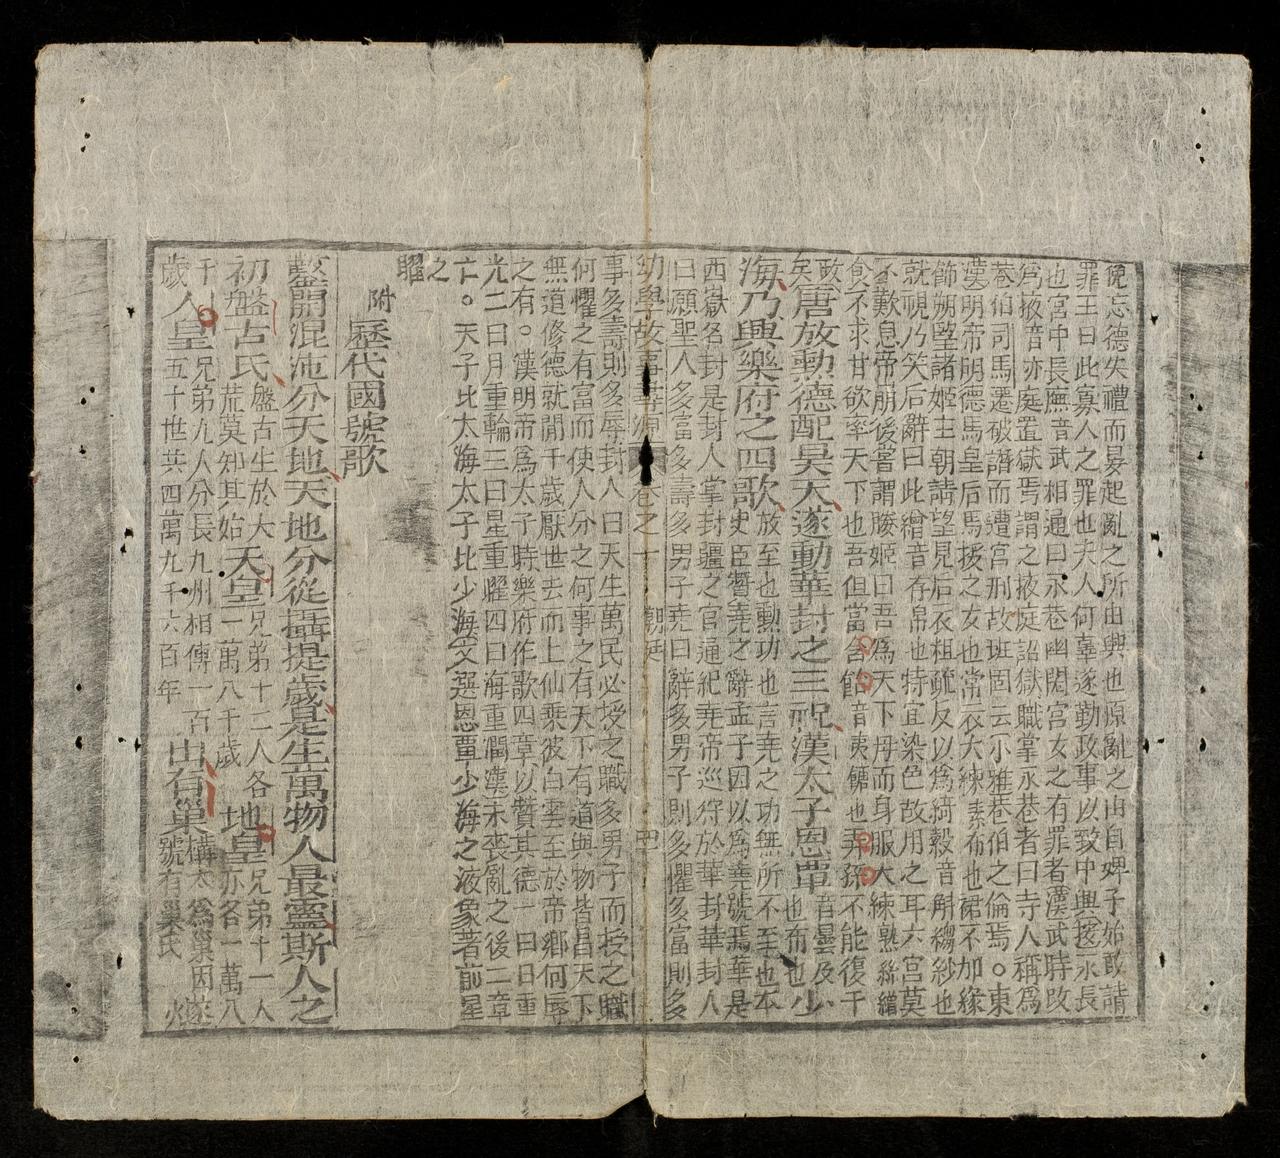 俛忘德失禮而晏起亂之所由興也原亂之由自婢子始敢請
罪王曰此寡人之罪也夫人何辜遂勤政事以致中興掖永長
也宮中長廡音武相通曰永巷幽閉宮女之有罪者漢武時改
爲掖音亦庭置獄焉謂之掖庭詔獄職掌永巷者曰寺人稱爲
巷伯司馬遷破譖而遭宮刑故班固云小雅巷伯之倫焉。東
漢明帝明德馬皇后馬援之女也常衣大練素布也裙不加緣
節朔望諸姬王朝請望見后衣粗疏反以爲綺縠音斛縐紗也
就視乃笑后辭曰此繒音存帛也特宜染色故用之耳六宮莫
不歎息帝崩後嘗謂媵姬曰吾爲天下母而身服大練熟絲繒
食不求甘欲率天下也吾但當含飴音夷餹也弄孫不能復干
政矣唐放勳德配昊天遂動華封之三祝漢太子恩覃音曇及也布也少
海乃興樂府之四歌放至也勳功也言堯之功無所不至也本
史臣贊堯之辭孟子因以爲堯號焉華是
西嶽名封是封人掌封疆之官通紀堯帝巡狩於華封華封人
曰願聖人多富多壽多男子堯曰辭多男子則多懼多富則多
幼學故事 卷之十 朝廷 四
事多壽則多辱封人曰天生萬民必授之職多男子而授之職
何懼之有富而使人分之何事之有天下有道與物皆昌天下
無道修德就閒千歲厭世去而上仙乘彼白雲至於帝鄉何辱
之有。漢明帝爲太子時樂府作歌四章以贊其德一曰日重
光二曰月重輪三曰星重曜四曰海重潤漢末喪亂之後二章
亡。天子比太海太子比少海文選恩覃少海之液象著前星
之
曜
附歷代國號歌
鑿開混沌分天地天地分從攝提歲是生萬物人最靈斯人之
初盤古氏盤古生於大荒莫知其始天皇兄弟十二人各一萬八千歲地皇兄弟十一人亦各一萬八
千歲人皇兄弟九人分長九州相傳一百五十世共四萬九千六百年出有巢構木爲巢因號有巢氏遂火